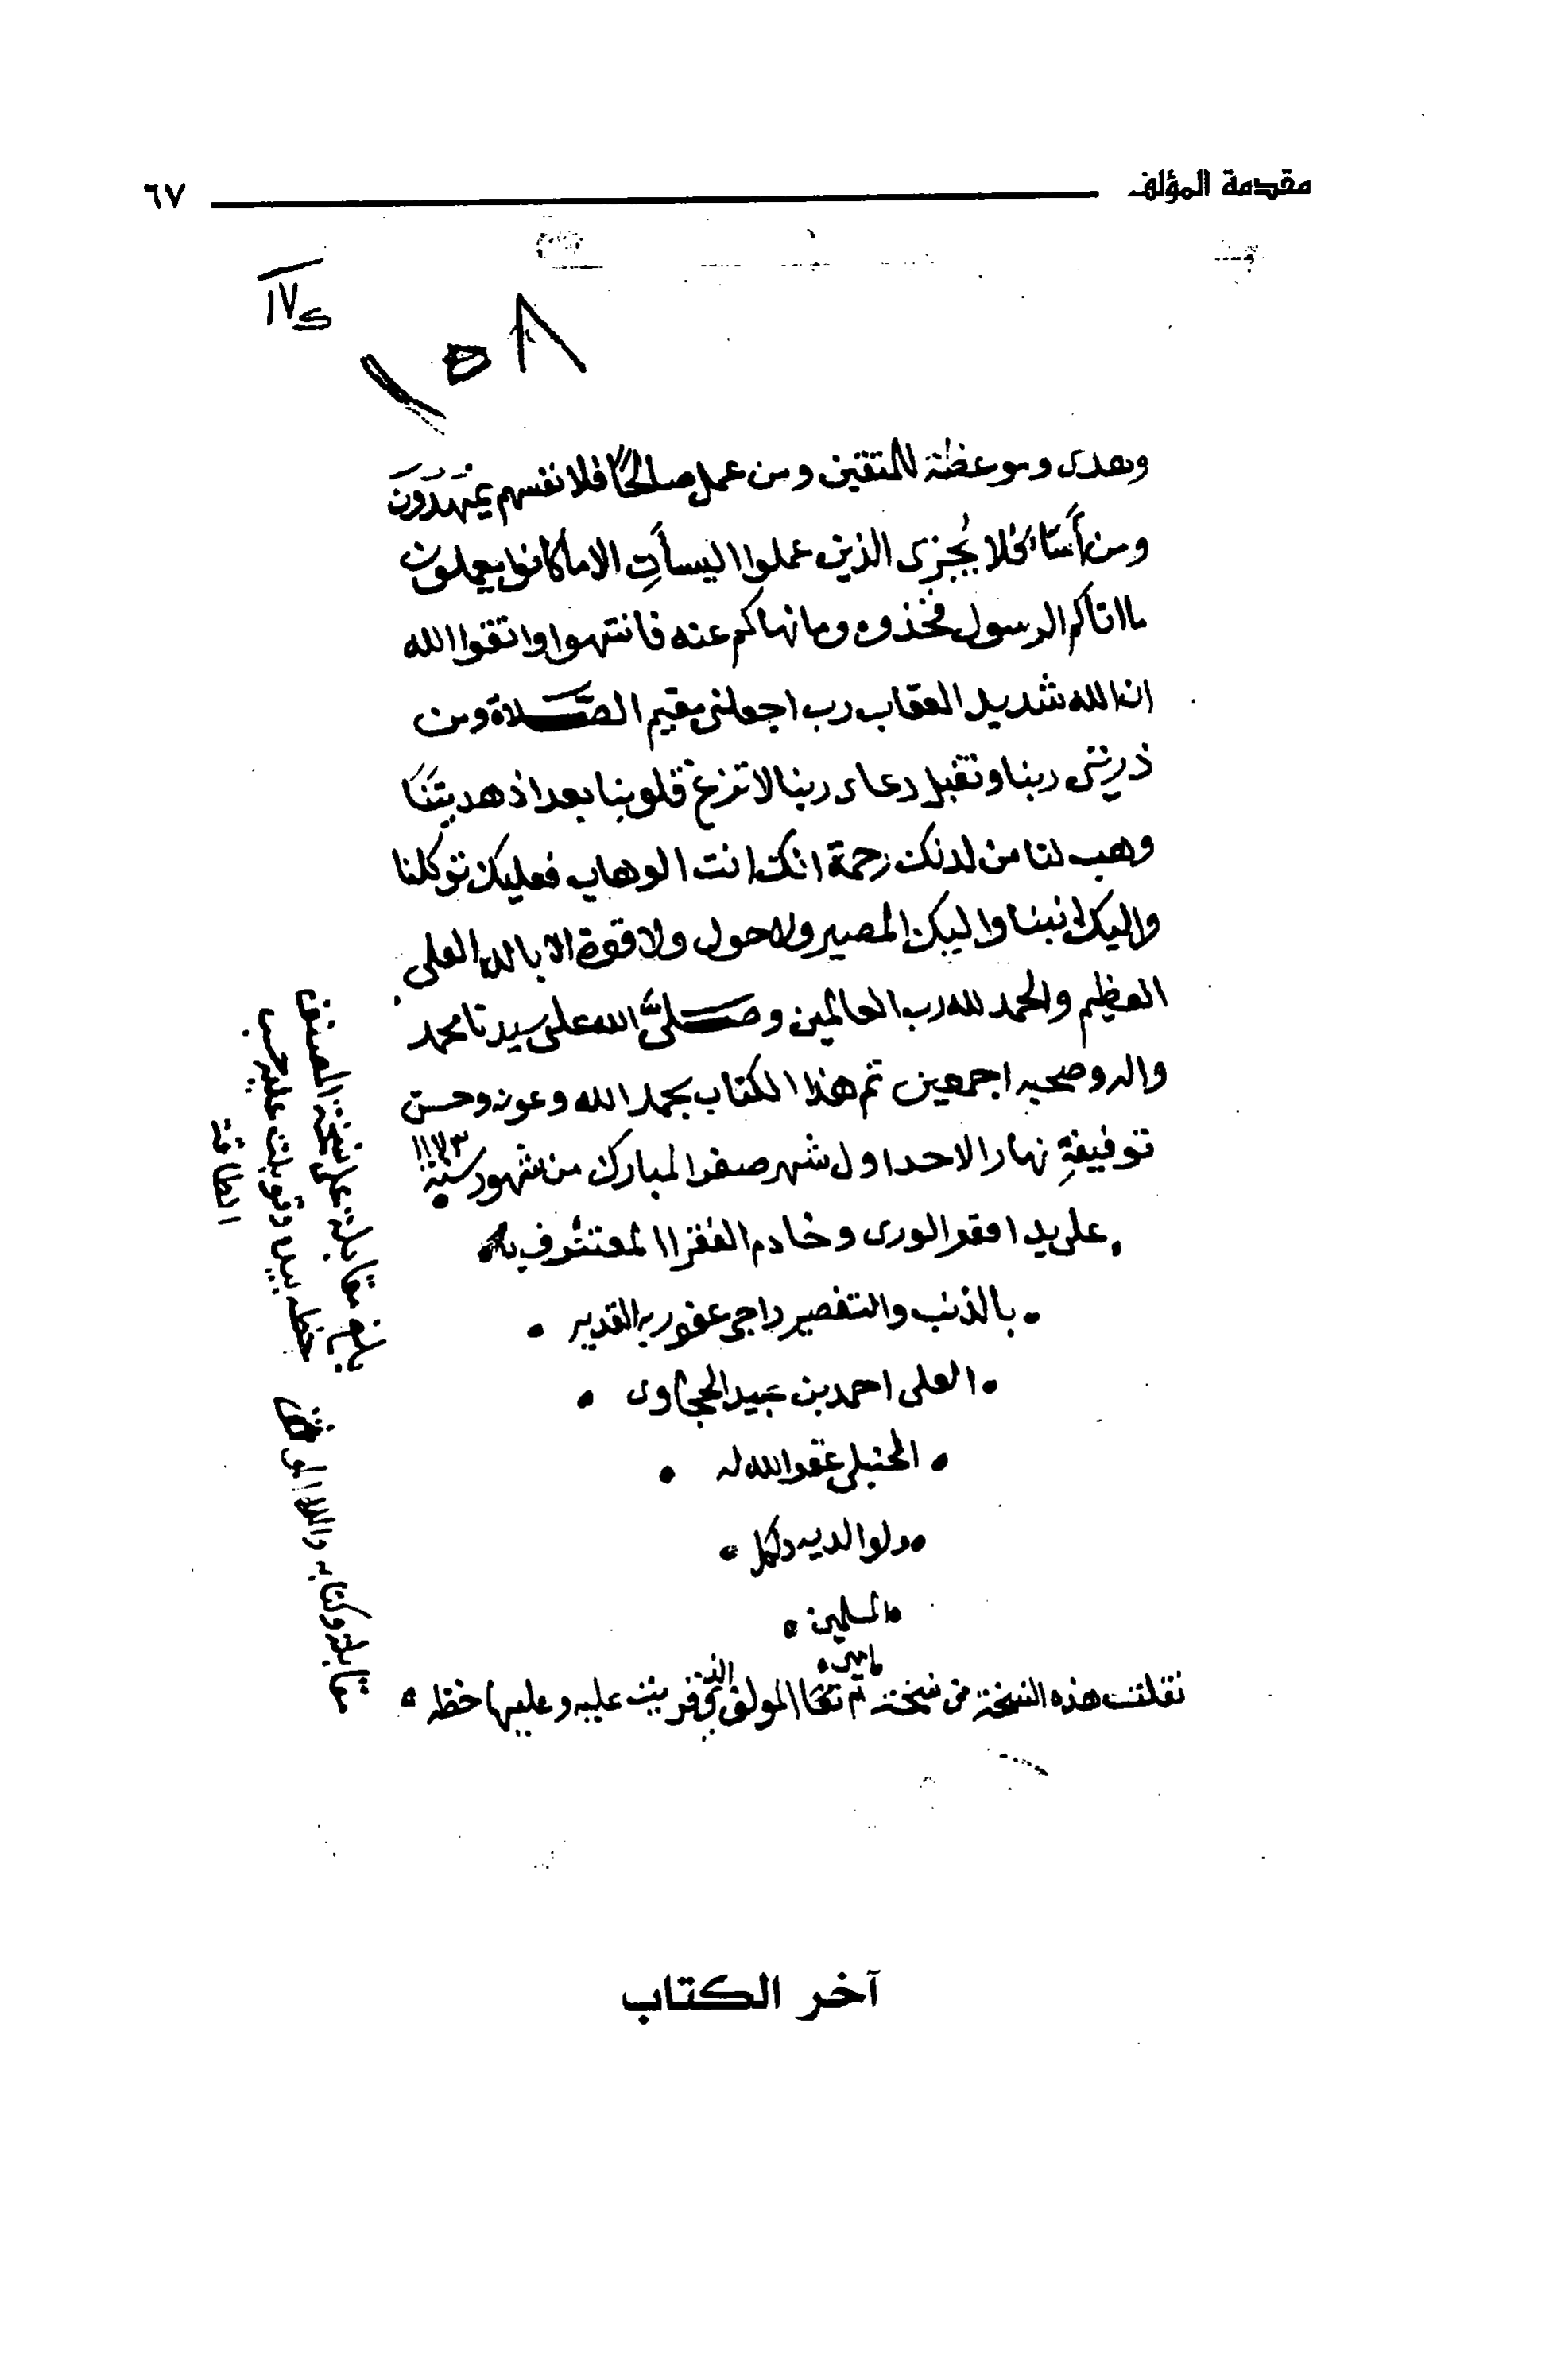 مقدمة المؤلف ٦٧
١٥٨
وهدى وموعظة للمتقين ومن عمل صالحًا فلانفسهم يمهَدُونَ
ومن أسَاء فلا يُجزى الذين عملوا اليسأتِ الا ما كانوا يعملون
ما اتاكم الرسول فخذوه وما نهاكم عنه فانتهوا واتقوا الله
ان الله شديد العقاب رب اجعلني مقيم الصَّلاة ومن
ذريتي ربنا وتقبل دعاى ربنا لا تزغ قلوبنا بعد اذ هديتَنَا
وهب لنا من لدنك رحمة انك انت الوهاب فعليك توكلنا
واليك انبنا واليك المصير ولا حول ولا قوة الا بالله العلي
العظيم والحمد لله رب العالمين وصَلىَّ الله على سيدنا محمد
واله وصحبه اجمعين تم هذا الكتاب بحمد الله وعونه وحسن
توفيقهِ نهار الاحد اول شهر صفر المبارك من شهور سنة ١١٧٣
على يد افقر الورى وخادم الفقرا المعترف
بالذنب والتقصير راجي عفو ربه القدير
العلى احمد بن الحجاوى
الحنبلي عفو الله له
ولوالديه ولكل
المسلمين
امين
نقلت هذه النسخة من نسخة المولف التي قريت عليه وعليها خطه
آخر الكتاب